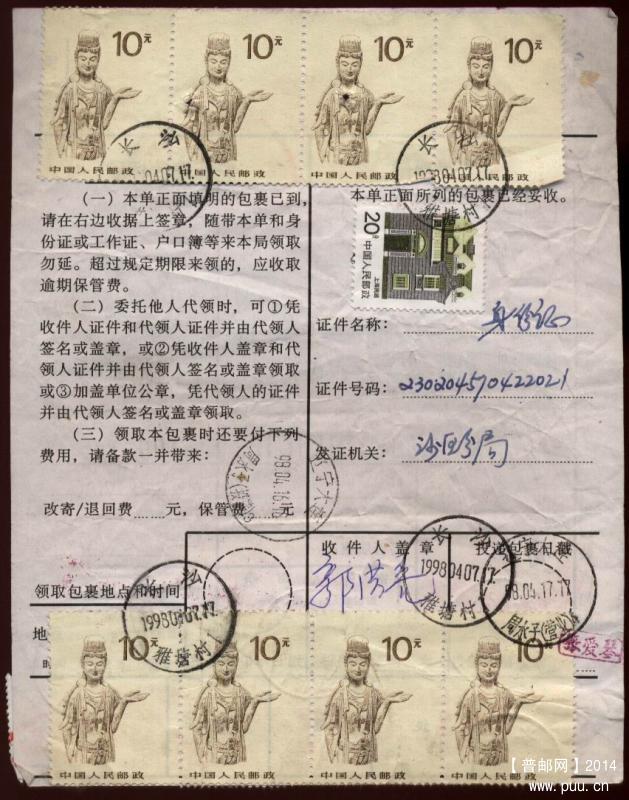 10元 10元 10元 10元
中国人民邮政 中国人民邮政 中国人民邮政 中国人民邮政
长沙
1998.04.07.17
雅塘村
(一)本单正面填明的包裹已到,
请在右边收据上签章,随带本单和身
份证或工作证、户口簿等来本局领取
勿延。超过规定期限来领的,应收取
逾期保管费。
(二)委托他人代领时,可①凭
收件人证件和代领人证件并由代领人
签名或盖章,或②凭收件人盖章和代
领人证件并由代领人签名或盖章领取
或③加盖单位公章,凭代领人的证件
并由代领人签名或盖章领取。
(三)领取本包裹时还要付下列
费用,请备款一并带来:
改寄/退回费……元,保管费 元
本单正面所列的包裹已经妥收。
20分
中国人民邮政
上海民居
证件名称: 身份证
证件号码: 230204570422021
发证机关: 沙区分局
98.04.16.16
收件人盖章
投递包裹日戳
领取包裹地点和时间
长沙
1998.04.07.17
雅塘村
长沙
1998.04.07.17
雅塘村
98.04.17.17
周水子(营业)
爱琴
10元 10元 10元 10元
中国人民邮政 中国人民邮政 中国人民邮政 中国人民邮政
【普邮网】2014
www.puu.cn